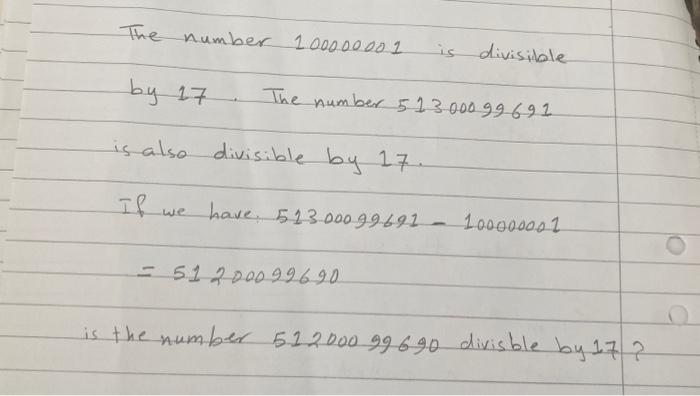 The number 100000001 is divisible
by 17. The number 51300099691
is also divisible by 17.
If we have. 51300099691 - 100000001
= 51200099690
is the number 51200099690 divisble by 17?